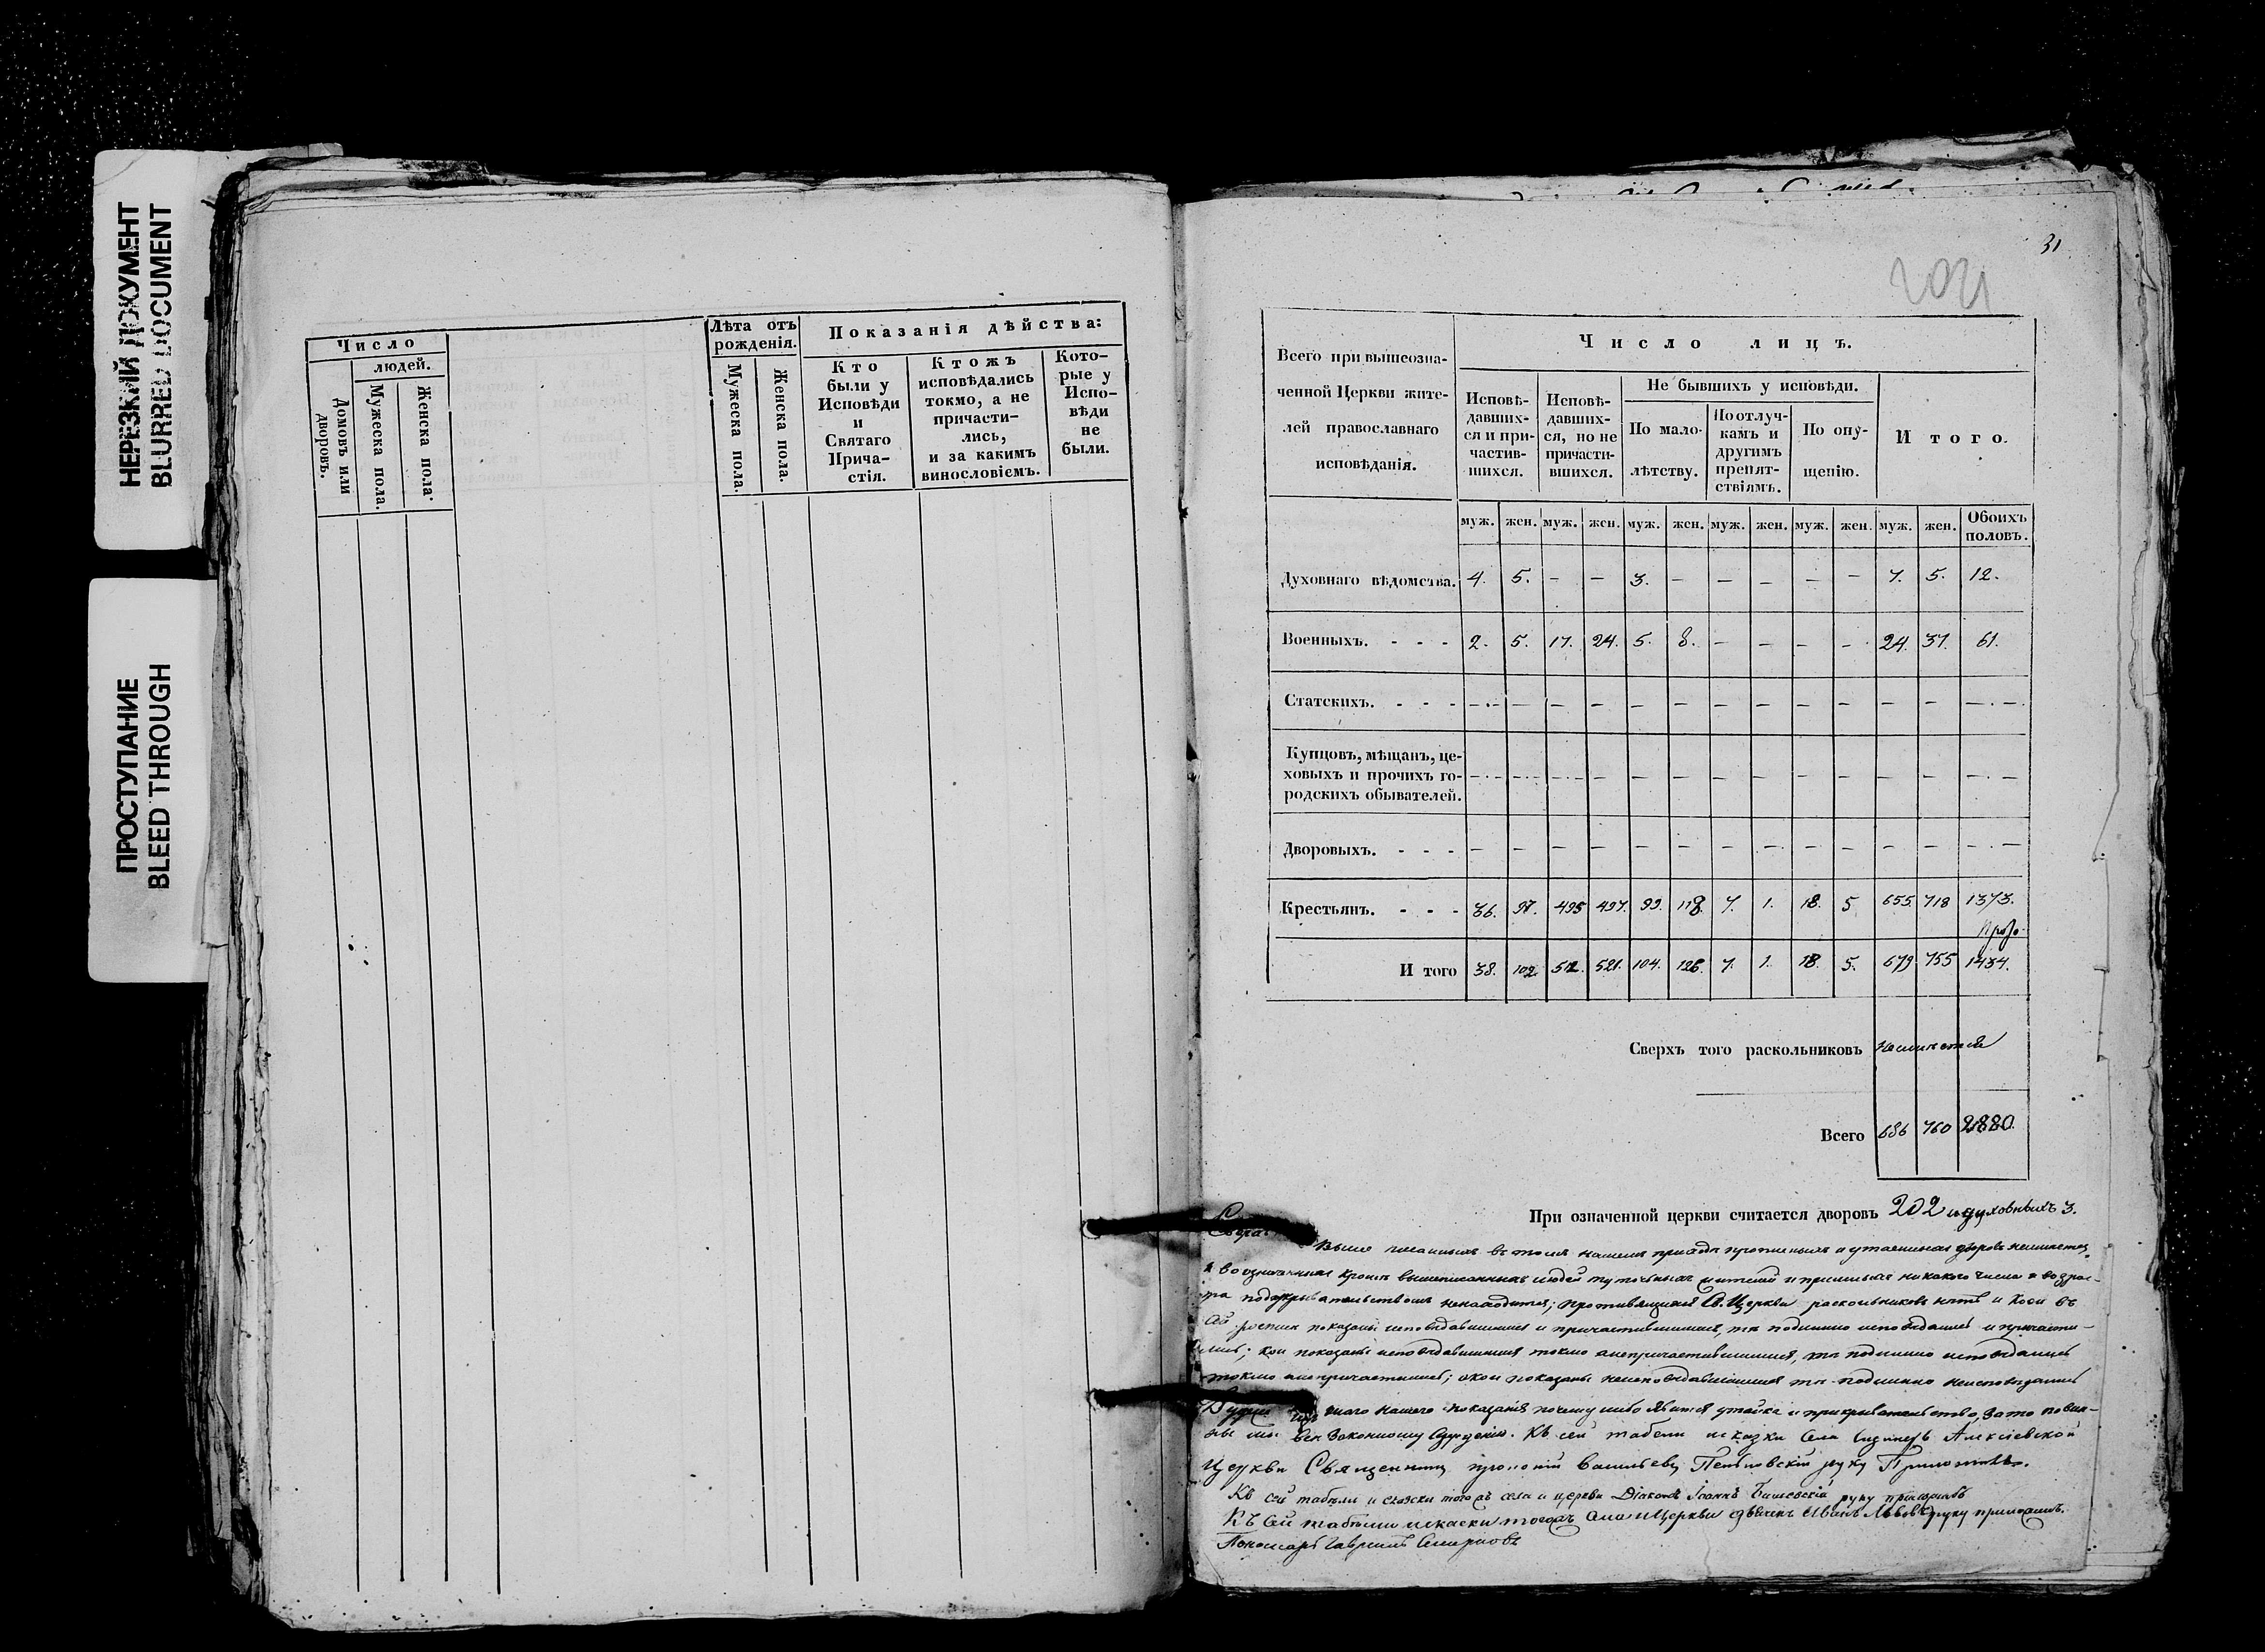 НЕРЕЗКИЙ ДОКУМЕНТ
BLURRED DOCUMENT
ПРОСТУПАНИЕ
BLEED THROUGH
Число
людей.
Домовъ или дворовъ.
Мужеска пола.
Женска пола.
Лѣта отъ рожденія.
Мужеска пола.
Женска пола.
Показанія дѣйства:
Кто
были у
Исповѣди
и
Святаго
Прича-
стія.
Ктожъ
исповѣдались
токмо, а не
причасти-
лись,
и за какимъ
винословіемъ.
Кото-
рые у
Испо-
вѣди
не
были.
31
Всего при вышеозна-
ченной Церкви жите-
лей православнаго
исповѣданія.
Число лицъ.
Исповѣ-
давших-
ся и при-
частив-
шихся.
Исповѣ-
давших-
ся, но не
причасти-
вшихся.
Не бывшихъ у исповѣди.
По мало-
лѣтству.
По отлуч-
камъ и
другимъ
препят-
ствіямъ.
По опу-
щенію.
Итого.
муж. жен. муж. жен. муж. жен. муж. жен. муж. жен. муж. жен. Обоихъ половъ.
Духовнаго вѣдомства. 4. 5. – – 3. – – – – – 7. 5. 12.
Военныхъ. - - - 2. 5. 17. 24. 5. 8. – – – – 24. 37. 61.
Статскихъ. - - - – – – – – – – – – – – – –
Купцовъ, мѣщанъ, це-
ховыхъ и прочихъ го-
родскихъ обывателей. – – – – – – – – – – – – –
Дворовыхъ. - - - – – – – – – – – – – – – –
Крестьянъ. - - - 36. 97. 495 497. 99. 118. 7. 1. 18. 5 655. 718 1373.
И того 38. 102. 512. 521. 104. 126. 7. 1. 18. 5. 679. 755 1434.
Сверхъ того раскольниковъ неимѣется
Всего 686 760
При означенной церкви считается дворовъ 202 и духовныхъ 3.
Выше писанныхъ въ томъ нашемъ приходѣ и утаенныхъ дворовъ неимѣется,
кромѣ вышеписанныхъ людей и никакого числа и возрас-
та ненаходится; Св. Церкви раскольниковъ нѣтъ и кои въ
сей росписи показаны исповѣдавшимися и причастившимися, тѣ подлинно исповѣдались и причасти-
лись; кои показаны исповѣдавшимися токмо анепричастившимися, тѣ подлинно исповѣдались
токмо анепричастились; акои показаны неисповѣдавшимися тѣ подлинно неисповѣдались
Будже сего нашего показанія почему либо явится утайка и прикрывательство, зато повин-
ны мы Законному Сужденію. Къ сей табели исказки села Алексіевской
Церкви Священникъ Васильевъ руку Приложилъ.
Къ сей табели и сказки тогожъ села и церкви Діаконъ Іоаннъ руку приложилъ
Къ сей табели искаски тогожъ села и Церкви дьячекъ Иванъ Львовъ руку приложилъ.
Пономарь Гавріилъ Смирновъ